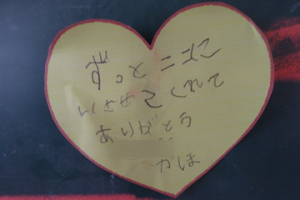 ずっとここに
いさせてくれて
ありがとう
かほ